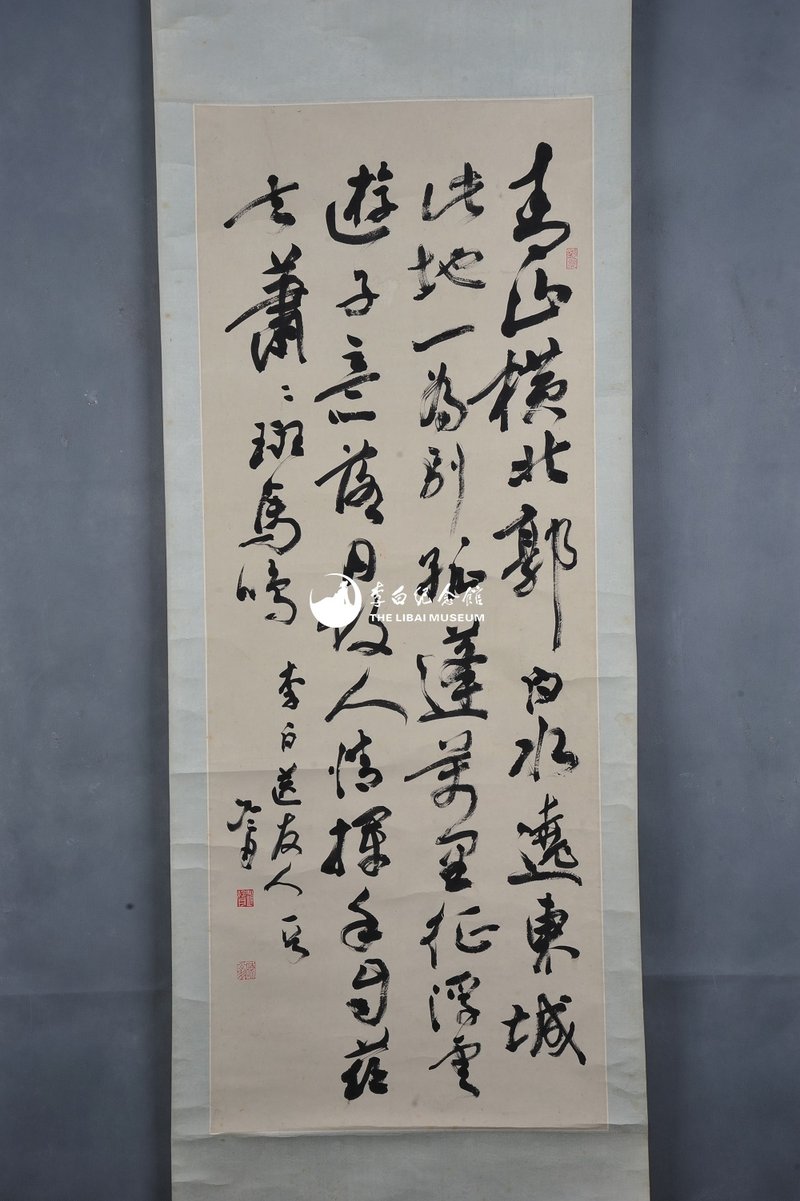 青山橫北郭白水遶東城
此地一為別孤蓬萬里征浮雲
遊子意落日故人情揮手自茲
去蕭〻班馬鳴
李白送友人
李白纪念館
THE LIBAI MUSEUM